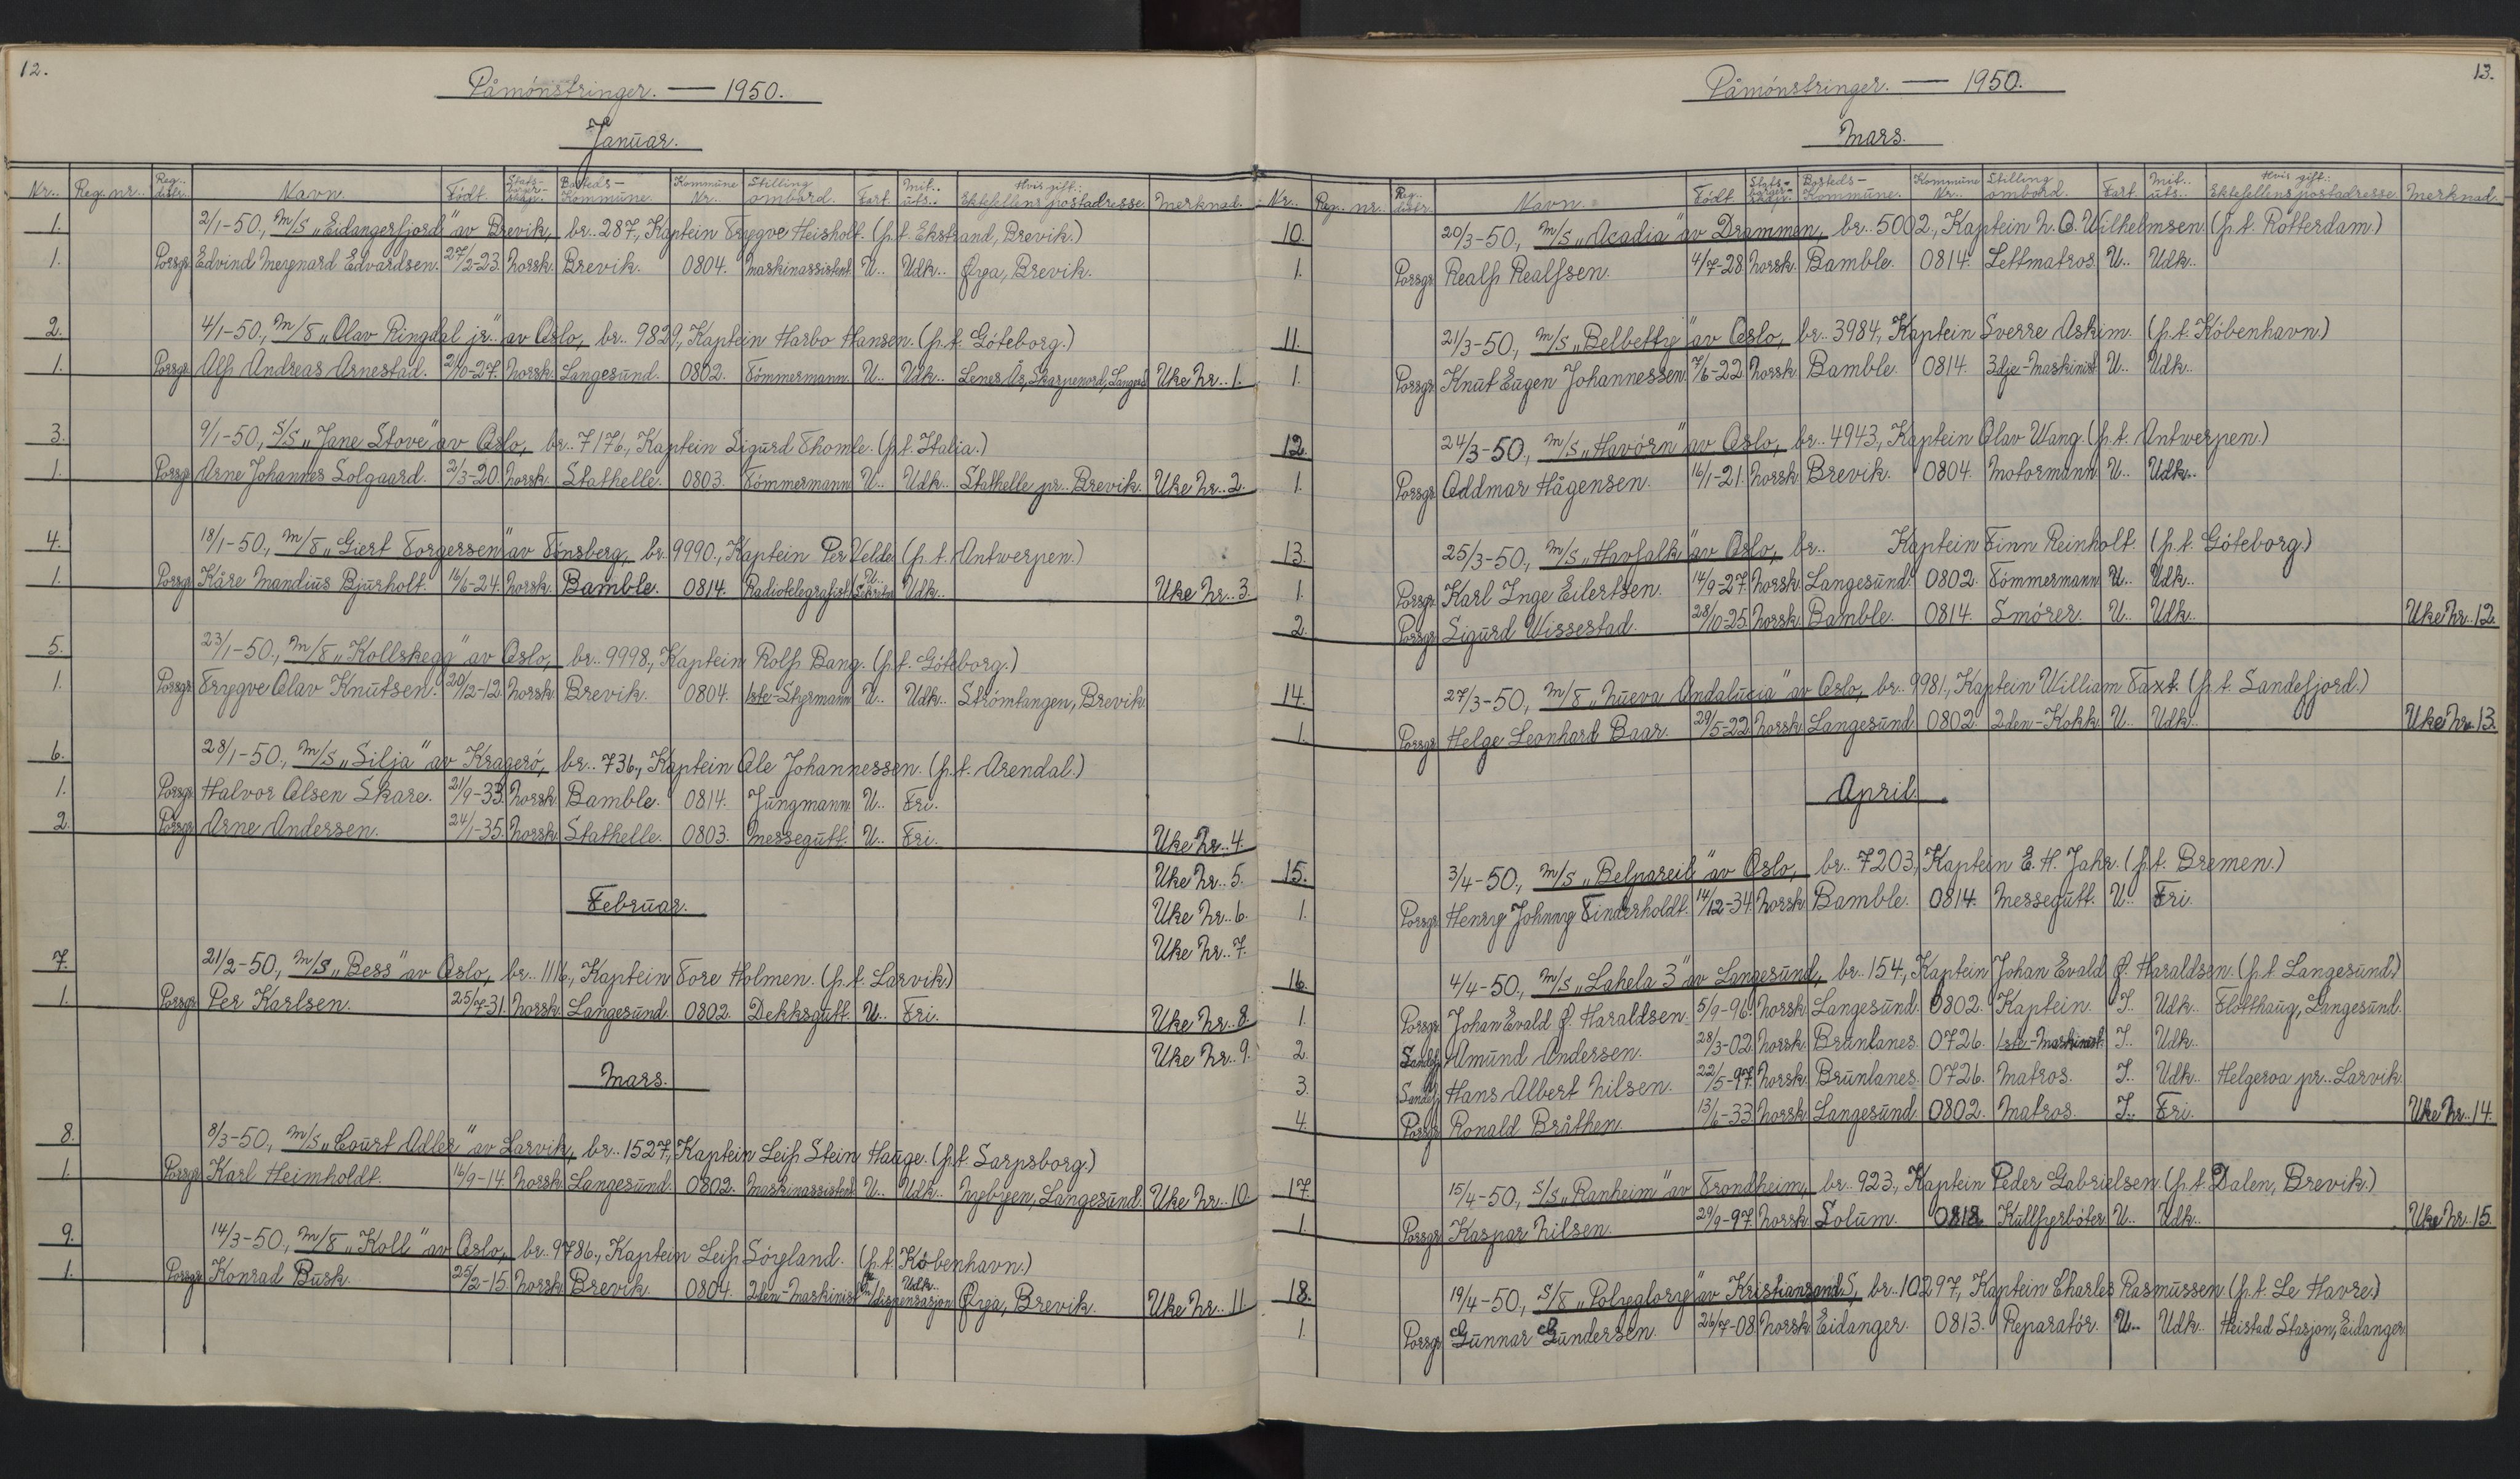 12.
Påmönstringer. — 1950.
Januar.
Nr.. Reg. nr.. Reg.. distr. Navn. Födt. Stats-borger-skap. Bosteds-Kommune. Kommune Nr.. Stilling ombord. Fart. Mil.. uts.. Hvis gift: Ektefellens postadresse. Merknad.
1. 2/1-50., M/S „Eidangerfjord" av Brevik, br.. 287., Kaptein Trygve Heisholt. (p.t. Ekstrand, Brevik.)
1. Porsgr. Edvind Meynard Edvardsen. 27/2-23. Norsk. Brevik. 0804. Maskinassistent. U.. Udk.. Øya, Brevik.
2. 4/1-50., M/T „Olav Ringdal jr." av Oslo, br.. 9829., Kaptein Harbo Hansen. (p.t. Göteborg.)
1. Porsgr. Alf Andreas Arnestad. 2/10-27. Norsk. Langesund. 0802. Tömmermann. U.. Udk.. Uke Nr.. 1.
3. 9/1-50., S/S „Jane Stove" av Oslo, br.. 7176., Kaptein Sigurd Thomle. (p.t. Italia.)
1. Porsgr. Arne Johannes Solgaard. 2/3-20. Norsk. Stathelle. 0803. Tömmermann. U.. Udk.. Stathelle pr.. Brevik. Uke Nr.. 2.
4. 18/1-50., M/T „Giert Torgersen" av Tönsberg, br. 9990., Kaptein Per Velde. (p.t. Antwerpen.)
1. Porsgr. Kåre Mandius Bjurholt. 16/6-24. Norsk. Bamble. 0814. Radiotelegrafist. U.. Udk.. Uke Nr.. 3.
5. 23/1-50., M/T „Kollskegg" av Oslo, br.. 9998., Kaptein Rolf Bang. (p.t. Göteborg.)
1. Porsgr. Trygve Olav Knutsen. 20/2-12. Norsk. Brevik. 0804. 1ste-Styrmann. U.. Udk.. Strömtangen, Brevik.
6. 28/1-50., M/S „Silja" av Kragerö, br.. 736., Kaptein Ole Johannessen. (p.t. Arendal.)
1. Porsgr. Halvor Olsen Skare. 21/9-33. Norsk. Bamble. 0814. Jungmann. U.. Fri.
2. Porsgr. Arne Andersen. 24/1-35. Norsk. Stathelle. 0803. Messegutt. U.. Fri. Uke Nr.. 4.
Uke Nr.. 5.
Februar.
Uke Nr.. 6.
Uke Nr.. 7.
7. 21/2-50., M/S „Bess" av Oslo, br.. 1116., Kaptein Tore Holmen. (p.t. Larvik.)
1. Porsgr. Per Karlsen. 25/7-31. Norsk. Langesund. 0802. Dekksgutt. U.. Fri. Uke Nr.. 8.
Uke Nr.. 9.
Mars.
8. 8/3-50., M/S „Court Adler" av Larvik, br.. 1527., Kaptein Leif Stein Hauge. (p.t. Sarpsborg.)
1. Porsgr. Karl Heimholdt. 16/9-14. Norsk. Langesund. 0802. Maskinassistent. U.. Udk.. Nybyen, Langesund. Uke Nr.. 10
9. 14/3-50., M/T „Koll" av Oslo, br.. 9786., Kaptein Leif Sögland. (p.t. Köbenhavn.)
1. Porsgr. Konrad Busk. 25/2-15. Norsk. Brevik. 0804. 2den-Maskinist m/dispensasjon Udk.. Øya, Brevik. Uke Nr.. 11
13.
Påmönstringer. — 1950.
Mars.
Nr.. Reg. nr.. Reg.. distr. Navn. Födt. Stats-borger-skap. Bosteds-Kommune. Kommune Nr.. Stilling ombord. Fart. Mil.. uts.. Hvis gift: Ektefellens postadresse Merknad.
10. 20/3-50., M/S „Acadia" av Drammen, br.. 5002., Kaptein N. O. Wilhelmsen. (p.t. Rotterdam.)
1. Porsgr. Realf Realfsen. 4/7-28. Norsk. Bamble. 0814. Lettmatros. U.. Udk..
11. 21/3-50., M/S „Belbetty" av Oslo, br.. 3984., Kaptein Sverre Askim. (p.t. Köbenhavn.)
1. Porsgr. Knut Eugen Johannessen. 7/6-22. Norsk. Bamble. 0814. 3dje-Maskinist. U.. Udk..
12. 24/3-50., M/S „Havörn" av Oslo, br.. 4943., Kaptein Olav Wang. (p.t. Antwerpen.)
1. Porsgr. Oddmar Hågensen. 16/1-21. Norsk. Brevik. 0804. Motormann. U.. Udk..
13. 25/3-50., M/S „Havfalk" av Oslo, br.. Kaptein Finn Reinholt. (p.t. Göteborg.)
1. Porsgr. Karl Inge Eilertsen. 14/9-27. Norsk. Langesund. 0802. Tömmermann. U.. Udk..
2. Porsgr. Sigurd Wissestad. 28/10-25. Norsk. Bamble. 0814. Smörer. U.. Udk.. Uke Nr.. 12.
14. 27/3-50., M/T „Nueva Andalucia" av Oslo, br.. 9981., Kaptein William Taxt. (p.t. Sandefjord.)
1. Porsgr. Helge Leonhard Baar. 29/5-22. Norsk. Langesund. 0802. 2den-Kokk. U.. Udk.. Uke Nr.. 13.
April.
15. 3/4-50., M/S „Belpareil" av Oslo, br.. 7203., Kaptein E. H. Jahr. (p.t. Bremen.)
1. Porsgr. Henry Johnny Finderholdt. 14/12-34. Norsk. Bamble. 0814. Messegutt. U.. Fri.
16. 4/4-50., M/S „Lahela 3" av Langesund, br.. 154., Kaptein Johan Evald J. Haraldsen. (p.t. Langesund.)
1. Porsgr. Johan Evald J. Haraldsen. 5/9-96. Norsk. Langesund. 0802. Kaptein. I.. Udk.. Flotthaug, Langesund.
2. Sandefj. Amund Andersen. 28/3-02. Norsk. Brunlanes. 0726. 1ste-Maskinist. I.. Udk..
3. Sandefj. Hans Albert Nilsen. 22/5-97. Norsk. Brunlanes. 0726. Matros. I.. Udk.. Helgeroa pr.. Larvik.
4. Porsgr. Ronald Bråthen. 13/6-33. Norsk. Langesund. 0802. Matros. I.. Fri. Uke Nr.. 14.
17. 15/4-50., S/S „Ranheim" av Trondheim, br.. 923., Kaptein Peder Gabrielsen. (p.t. Dalen, Brevik.)
1. Porsgr. Kaspar Nilsen. 29/9-97. Norsk. Solum. 0818. Kullfyrböter. U.. Udk.. Uke Nr.. 15.
18. 19/4-50., S/T „Polyglory" av Kristiansand S, br.. 10297, Kaptein Charles Rasmussen. (p.t. Le Havre.)
1. Porsgr. Gunnar Gundersen. 26/7-08. Norsk. Eidanger. 0813. Reparatör. U.. Udk.. Heistad Stasjon, Eidanger